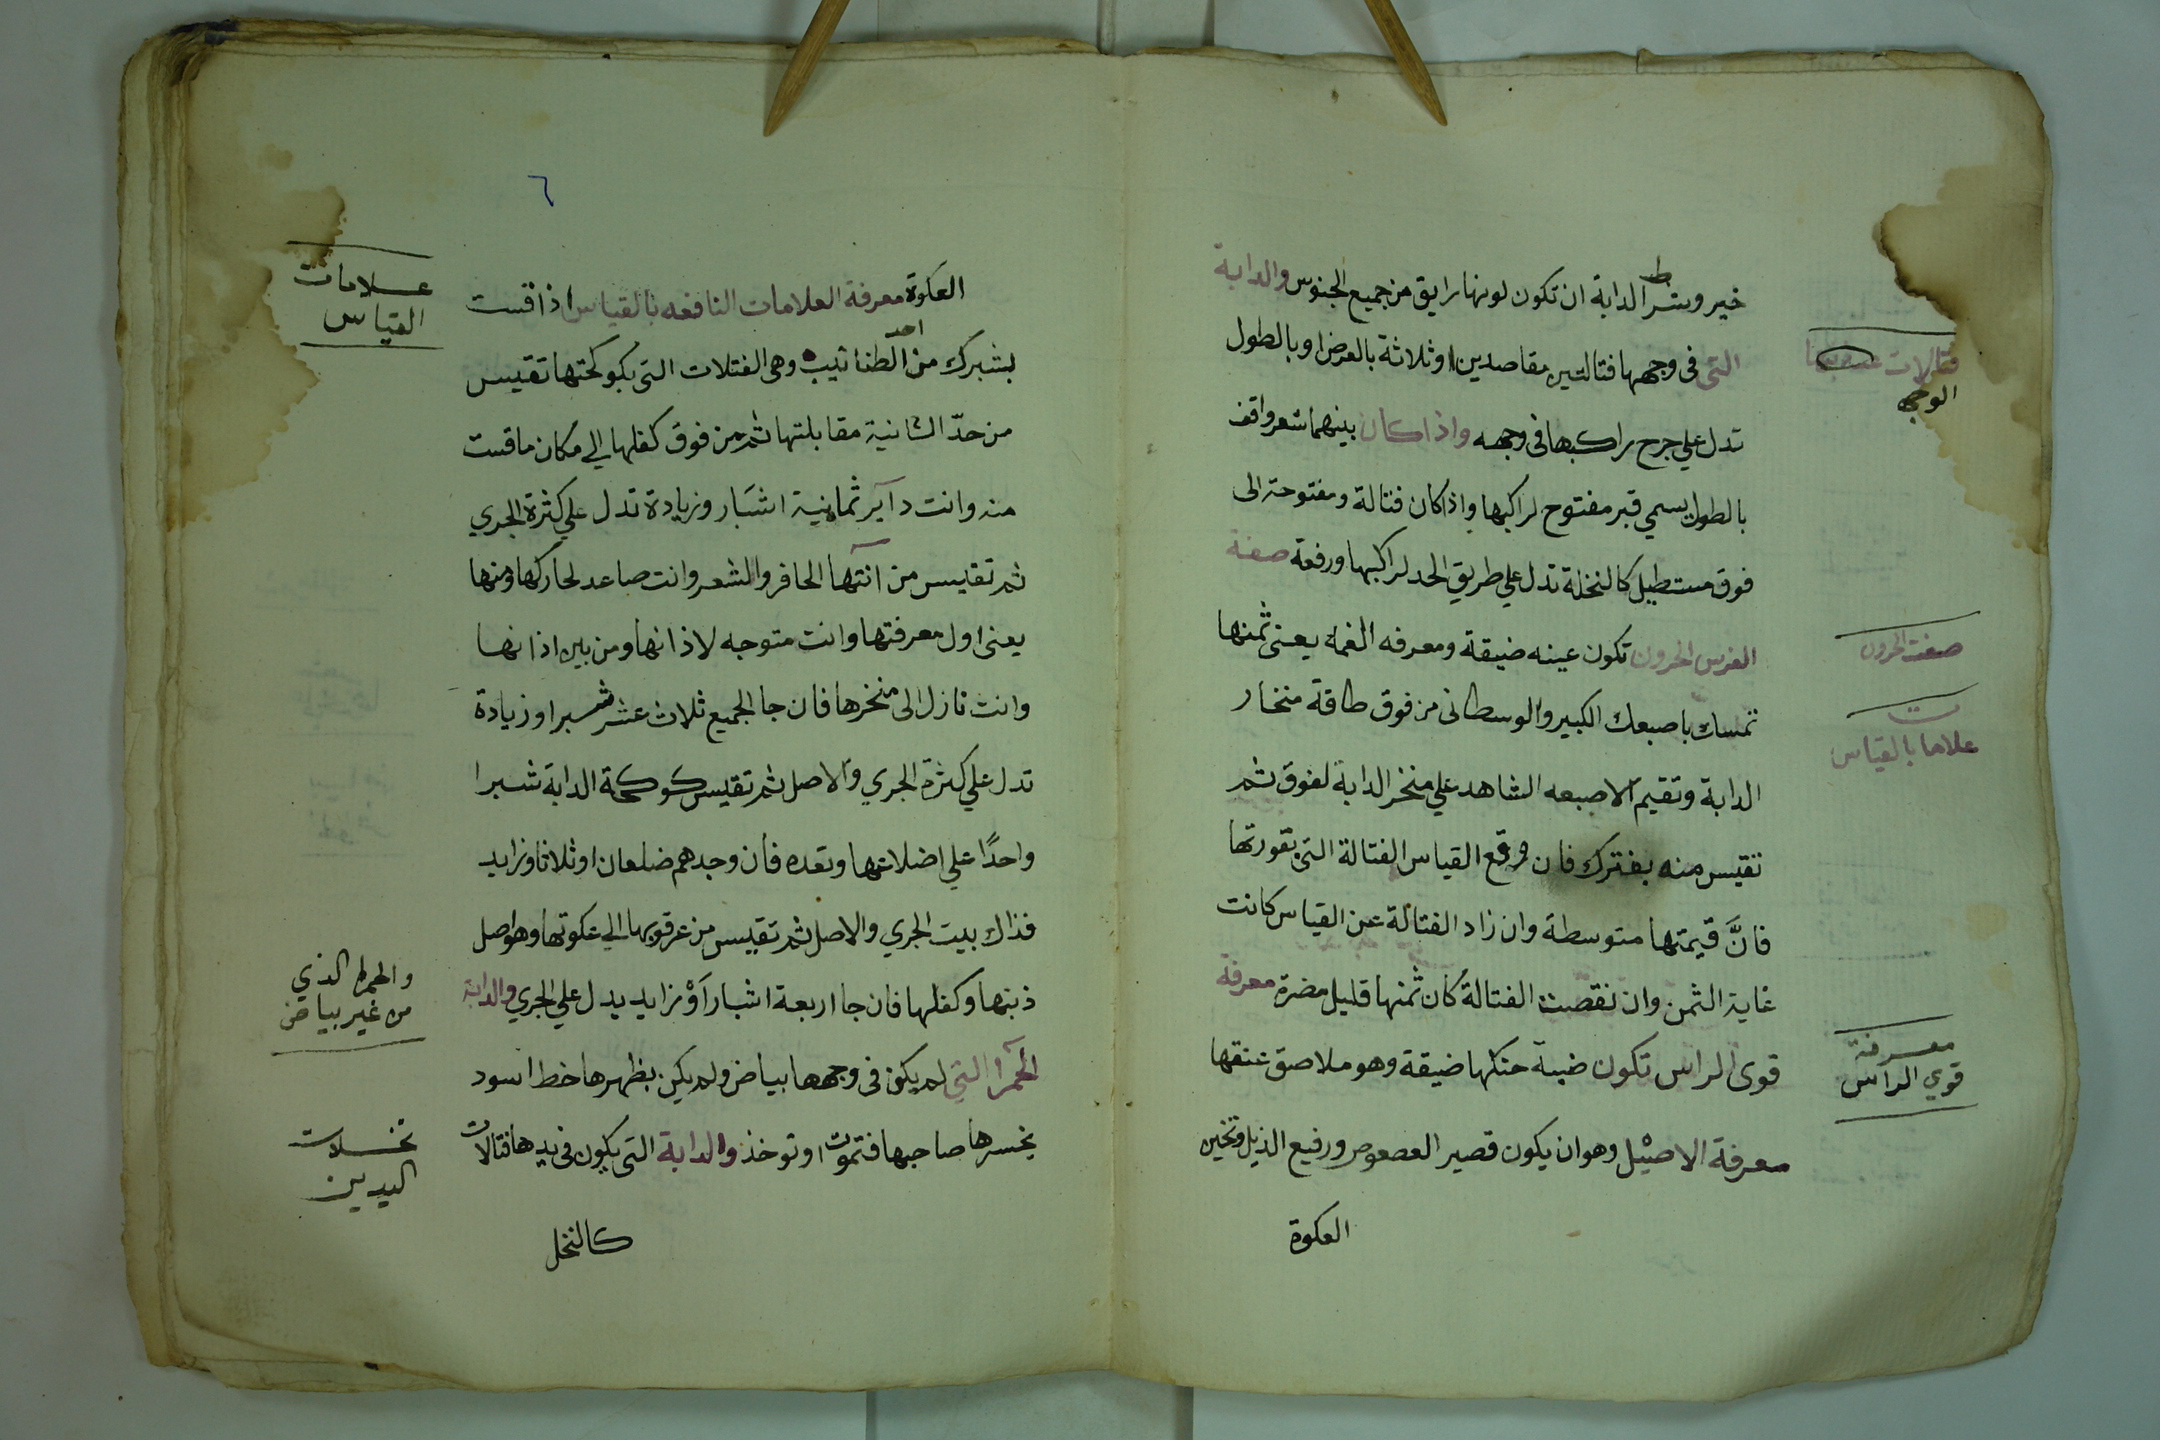 خير وشرط الدابة ان تكون لونها رايق من جميع الجنوس والدابة
التي في وجهها فتالتين مقاصدين اوثلاثة بالعرض اوبالطول
تدل علي جرح راكبها في وجهه واذا كان بينهما شعر واقف
بالطول يسمي قبر مفتوح لراكبها واذا كان فتالة ومفتوحة الى
فوق مستطيل كالنخلة تدل علي طريق الحد لراكبها ورفعة صفة
الفرس الحرون تكون عينه ضيقة ومعرفه الغمه يعني ثمنها
تمسك باصبعك الكبير والوسطاني من فوق طاقة منخار
الدابة وتقيم الاصبعه الشاهد علي منخر الدابة لفوق ثم
تقيس منه بفترك فان وقع القياس الفتالة التي بقورتها
فانَّ قيمتها متوسطة وان زاد الفتالة عن القياس كانت
غاية الثمن وان نقصت الفتالة كان ثمنها قليل مضرة معرفة
قوى الراس تكون ضبة حنكها ضيقة وهو ملاصق عنقها
معرفة الاصيل وهو ان يكون قصير العصعوص ورفيع الذيل وتخين
العكوة
فتالات
الوجه
صفت الحرون
علامات بالقياس
معرفة
قوي الراس
٦
العكوة معرفة العلامات النافعه بالقياس اذا قست
بشبرك من احد الطنانيب وهي الفتلات التي بكوكحتها تقيس
من حدّ الثانية مقابلتها ثم من فوق كفلها الي مكان ما قست
منه وانت داير ثمانية اشبار وزيادة تدل علي كثرة الجري
ثم تقيس من انتها الحافر والشعر وانت صاعد لحاركها ومنها
يعني اول معرفتها وانت متوجه لاذانها ومن بين اذانها
وانت نازل الى منخرها فان جا الجميع ثلاث عشر شبر او زيادة
تدل علي كثرة الجري والاصل ثم تقيس كوكحة الدابة شبرا
واحدًا علي اضلاعها وتعده فان وجدهم ضلعان اوثلاثا وزايد
فذاك بيت الجري والاصل ثم تقيس من عرقوبها الي عكوتها وهو اصل
ذنبها وكفلها فان جا اربعة اشبار اوزايد يدل علي الجري والدابة
الحمرا التي لم يكن في وجهها بياض ولم يكن بظهرها خط اسود
يخسرها صاحبها فتموت اوتوخذ والدابة التي يكون في يدها فتالات
كالنخل
علامات
القياس
والحمرا الذي
من غير بياض
نخلات
اليدين